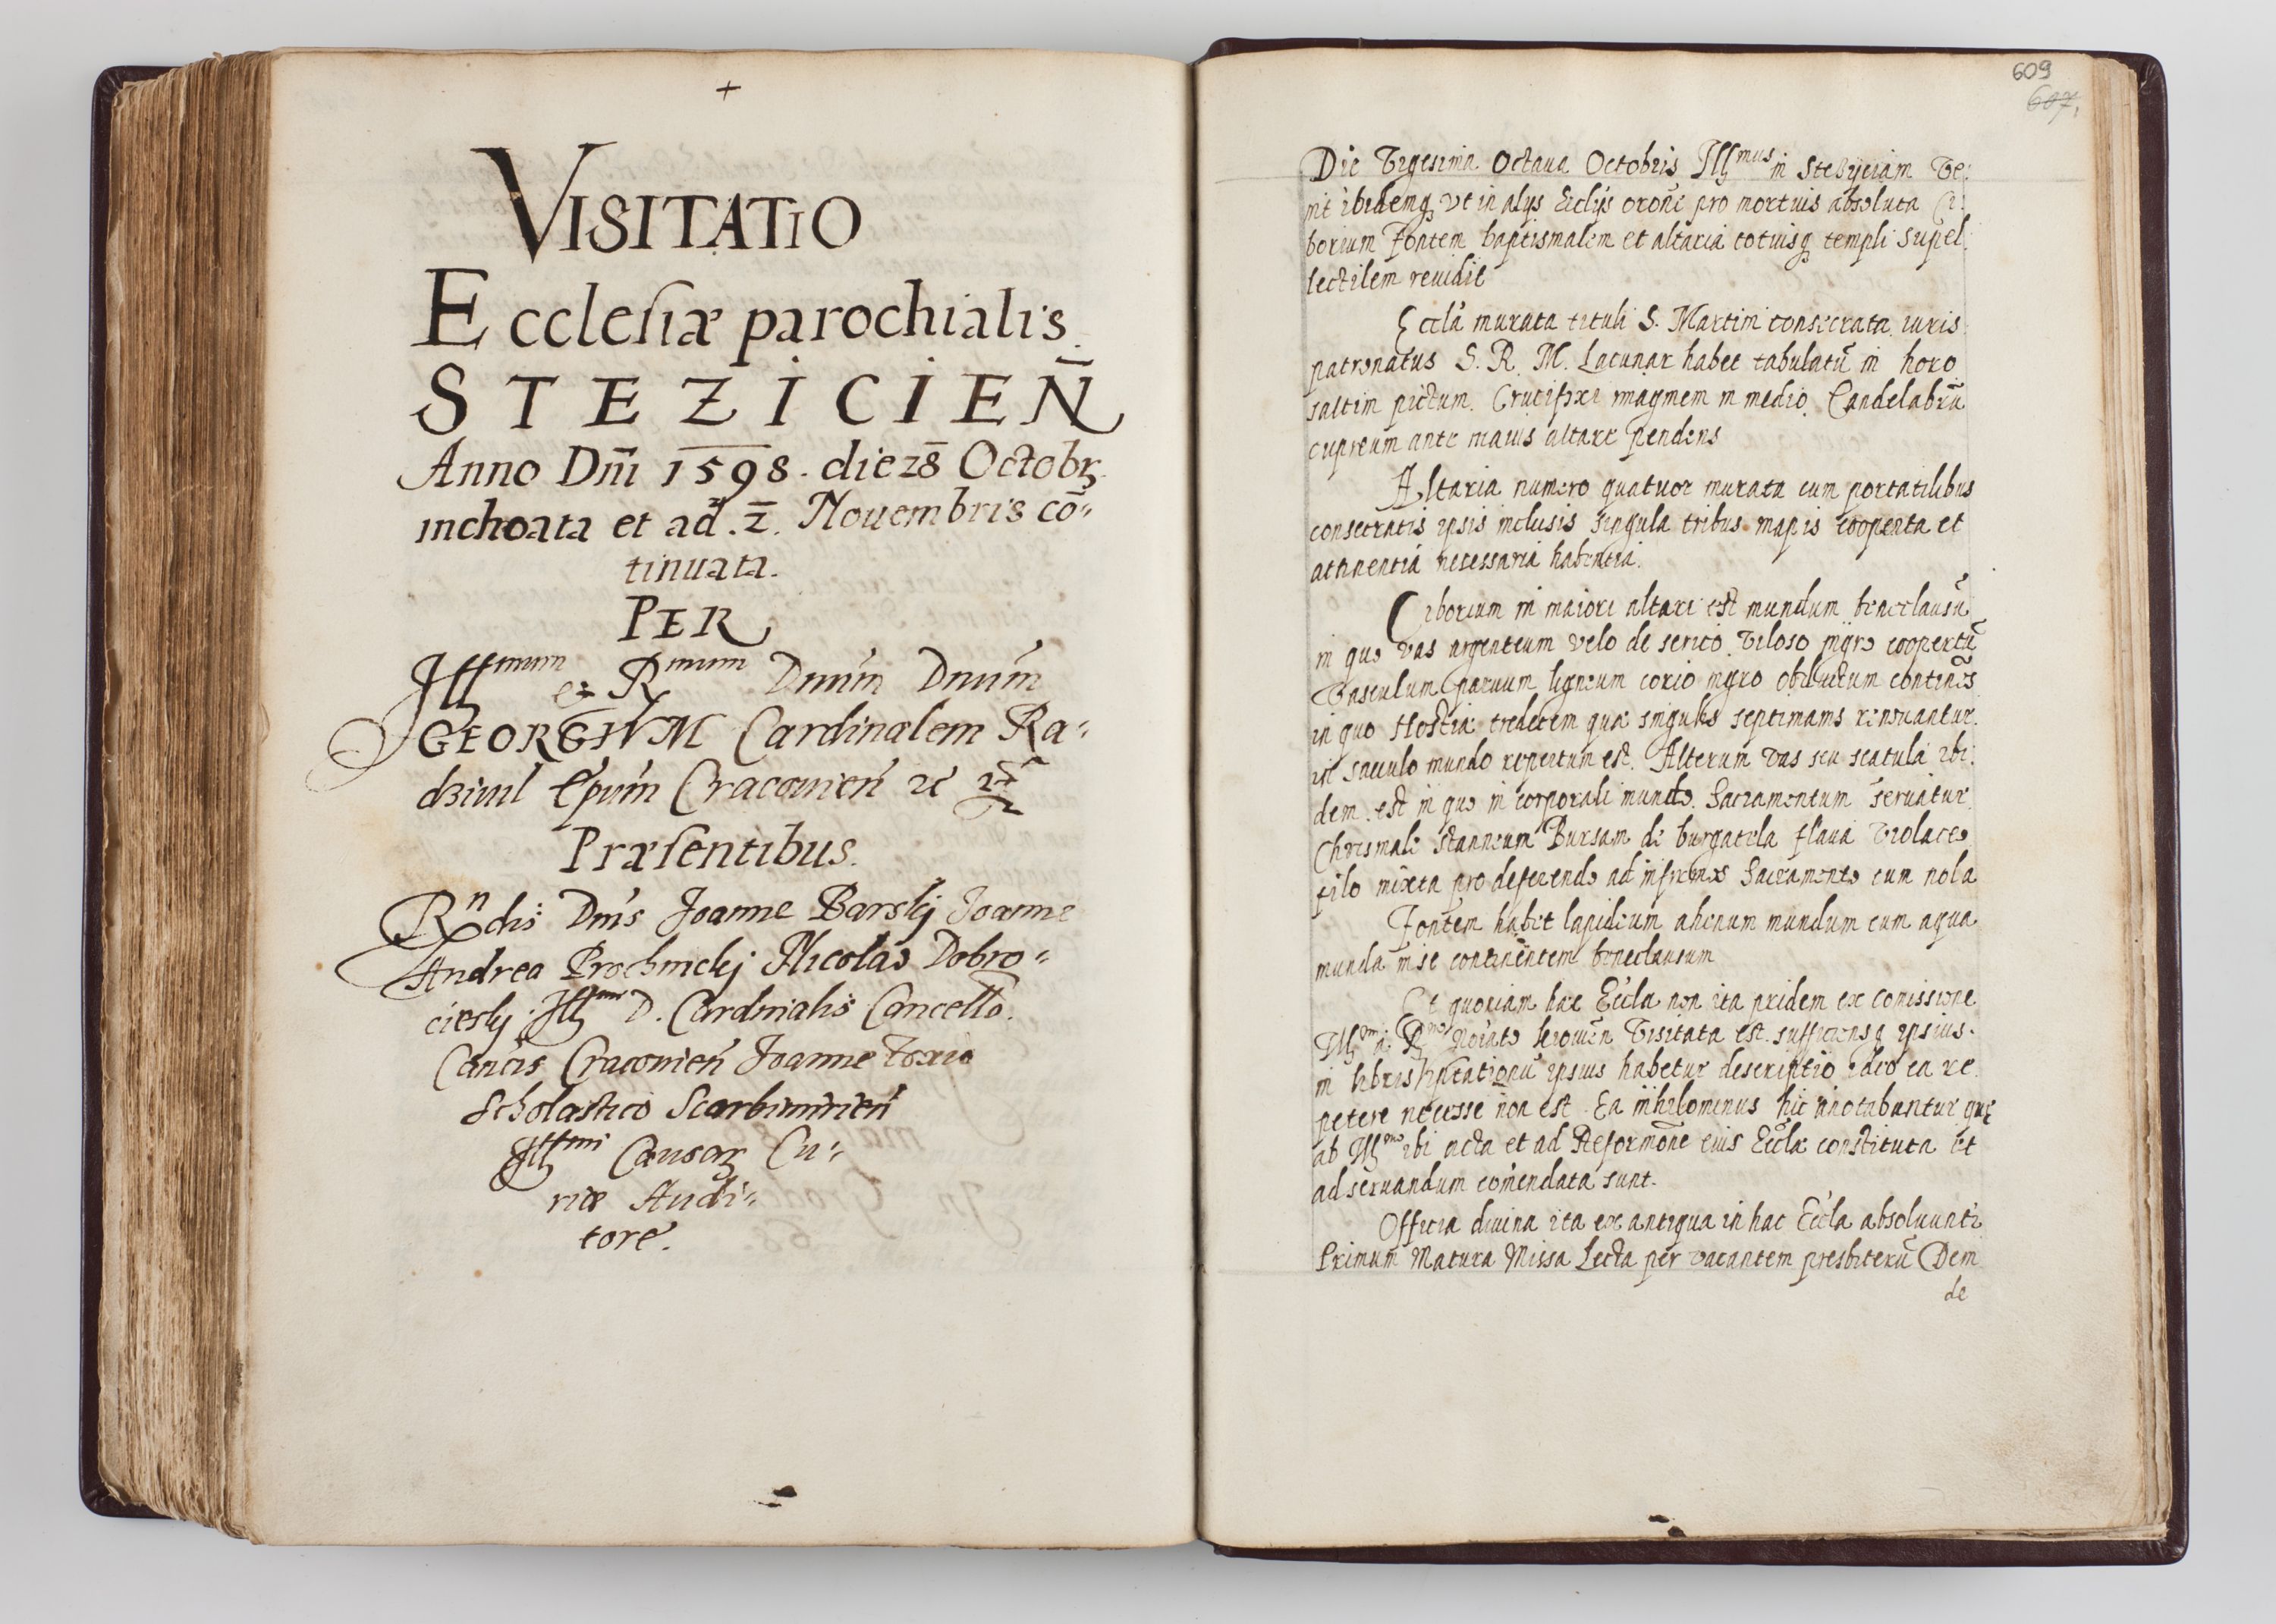 +
VISITATIO
Ecclesiæ parochialis
STEZICIEN̄
Anno Dn̄i 1598. die 28 Octobr̨
inchoata et ad .2. Nouembris cō=
tinuata.
PER
Illmum et Rmum Dnum Dnum
GEORGIVM Cardinalem Ra=
dziuil Epum Cracouien̄ zc
Præsentibus.
Rndis Dnis Joanne Barskj Joanne
Andrea Prochnickj Nicolao Dobro=
cieskj Illmi D. Cardinalis Cancello.
Cancis Cracouien Joanne Foxio
Scholastico Scarbimirien
Illmi Causarꝝ Cu=
riæ Audi=
tore.
609
607.
Die Vigesima Octaua Octobris Illmus in Stezyciam Ve:
nit ibidemq̨ vt in alys Ecclijs orone pro mortuis absoluta Ci:
borium Fontem baptismalem et altaria totiusq̨ templi supel:
lectilem reuidit
Eccla murata tituli S. Martini consecrata iuris
patronatus S. R. M. Lacunar habet tabulatū in horo
saltim pictum. Crucifixi imaginem in medio. Candelabrū
cupreum ante maius altare pendens
Altaria numero quatuor murata cum portatilibus
consecratis ipsis inclusis singula tribus mapis cooperta et
attinentia necessaria habentia.
Ciborium in maiori altari est mundum beneclausū
in quo vas argenteum velo de serico viloso nigro coopertū
Vasculum paruum ligneum corio nigro obductum continēs
in quo Hostiæ tredecim quæ singulis septimanis renouantur
in sacculo mundo repertum est. Alterum vas seu scatula ibi:
dem est in quo in corporali mundo Sacramentum seruatur
Chrismale stanneum Bursam de burgatela flaua violaceo
filo mixta pro deferendo ad infirmos Sacramento cum nola
Fontem habet lapideum ahenum mundum cum aqua
munda in se continentem beneclausum
Et quoniam hæc Eccla non ita pridem ex comissione
Illmi a Rmo Visitata est. sufficiensq̨ ipsius
in libris ipsius habetur descriptio ideo ea re
petere necesse non est. Ea nihilominus hic anotabantur quę
ab Illmo ibi acta et ad Reformone eius Ecclæ constituta et
ad seruandum comendata sunt.
Officia diuina ita ex antiqua in hac Eccla absoluunt̃
Primum Matura Missa Lecta per vacantem presbiterū Dein
de